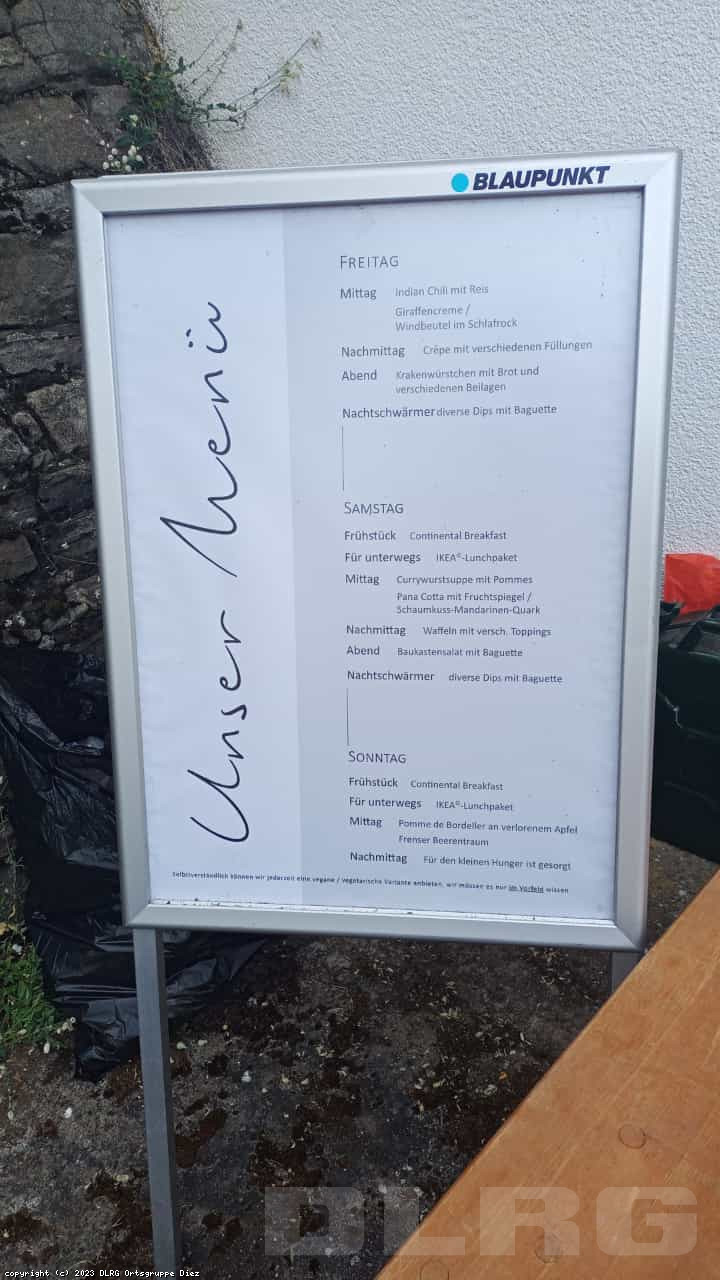 BLAUPUNKT
Unser Menü
FREITAG
Mittag Indian Chili mit Reis
Giraffencreme /
Windbeutel im Schlafrock
Nachmittag Crêpe mit verschiedenen Füllungen
Abend Krakenwürstchen mit Brot und
verschiedenen Beilagen
Nachtschwärmer diverse Dips mit Baguette
SAMSTAG
Frühstück Continental Breakfast
Für unterwegs IKEA©-Lunchpaket
Mittag Currywurstsuppe mit Pommes
Pana Cotta mit Fruchtspiegel /
Schaumkuss-Mandarinen-Quark
Nachmittag Waffeln mit versch. Toppings
Abend Baukastensalat mit Baguette
Nachtschwärmer diverse Dips mit Baguette
SONNTAG
Frühstück Continental Breakfast
Für unterwegs IKEA©-Lunchpaket
Mittag Pomme de Bordeller an verlorenem Apfel
Frenser Beerentraum
Nachmittag Für den kleinen Hunger ist gesorgt
Selbstverständlich können wir jederzeit eine vegane / vegetarische Variante anbieten, wir müssen es nur im Vorfeld wissen
DLRG
copyright (c) 2023 DLRG Ortsgruppe Diez